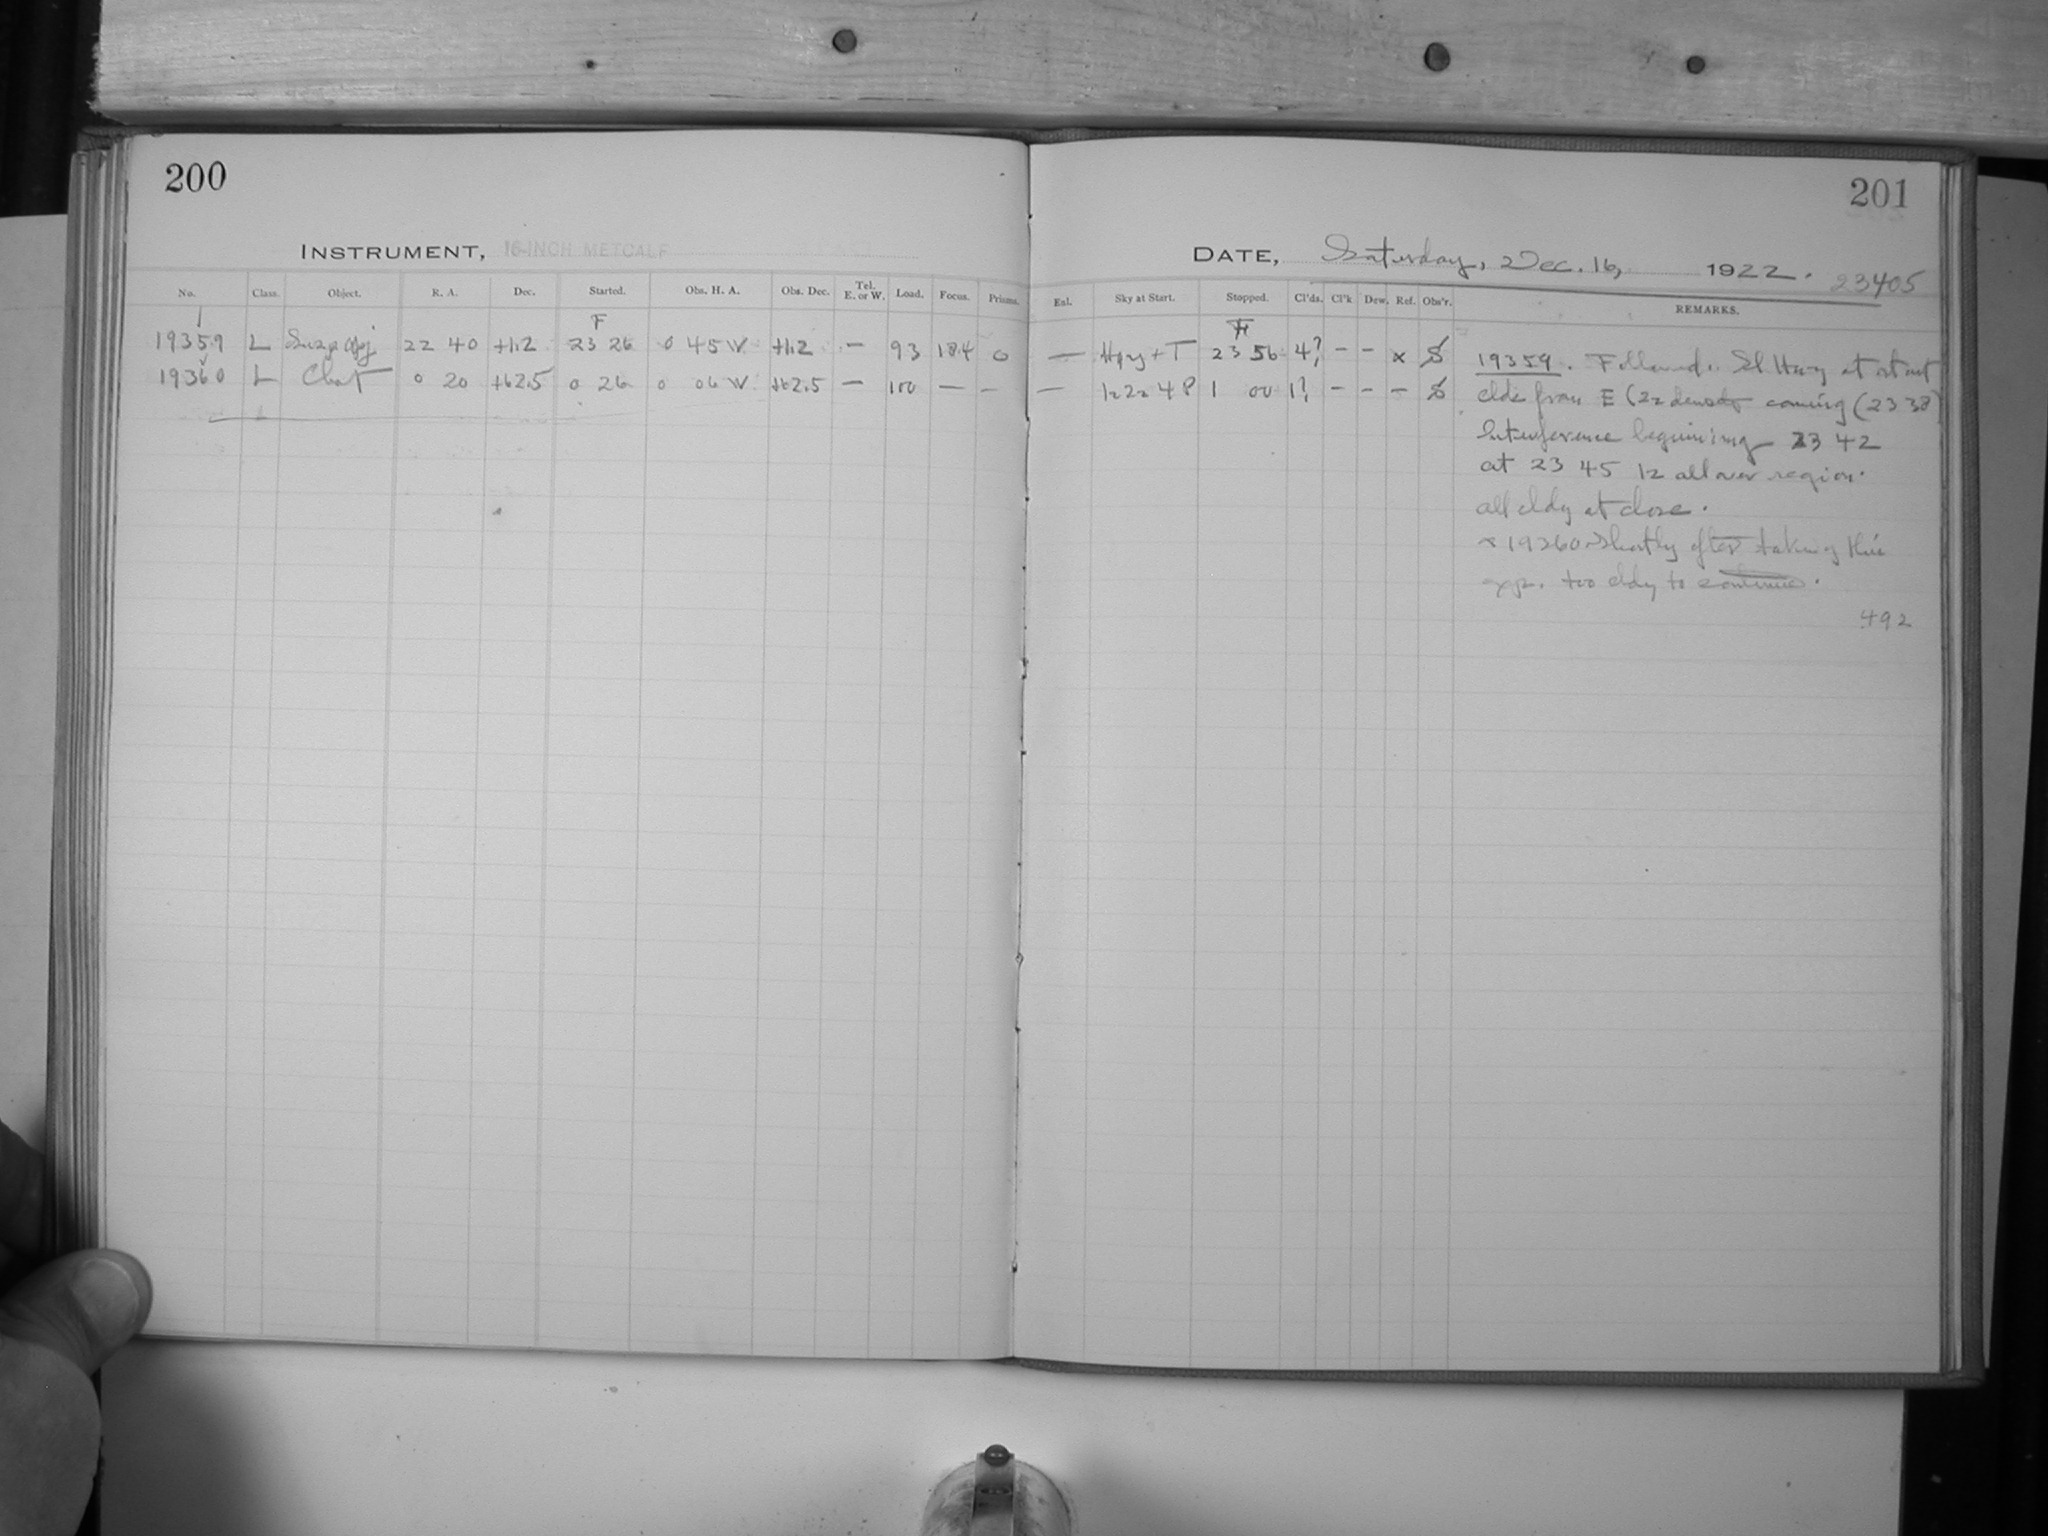 200
201
INSTRUMENT, 16-INCH METCALF
DATE, Saturday, Dec. 16, 1922.
23405
No. Class. Object. R. A. Dec. Started. Obs. H. A. Obs. Dec. Tel. E. or W. Load. Focus. Prisms. Enl. Sky at Start. Stopped. Cl'ds. Cl'k Dew. Ref. Obs'r. REMARKS.
F
19359 L 22 40 +1.2 23 26 0 45 W +1.2 — 93 18.4 0 — Hzy + T 23 56 4? - - x S
19360 L Chart 0 20 +62.5 0 26 0 06 W +62.5 — 100 — — — 1z2z 4 P 1 00 1? - - - S
19359. Followed. Sl Hzy at start
clds from E (2z coming (23 38)
Interference beginning 23 42
at 23 45 1z all over region.
all cldy at close.
x 19360 Shortly after taking this
exp. too cldy to continue.
492